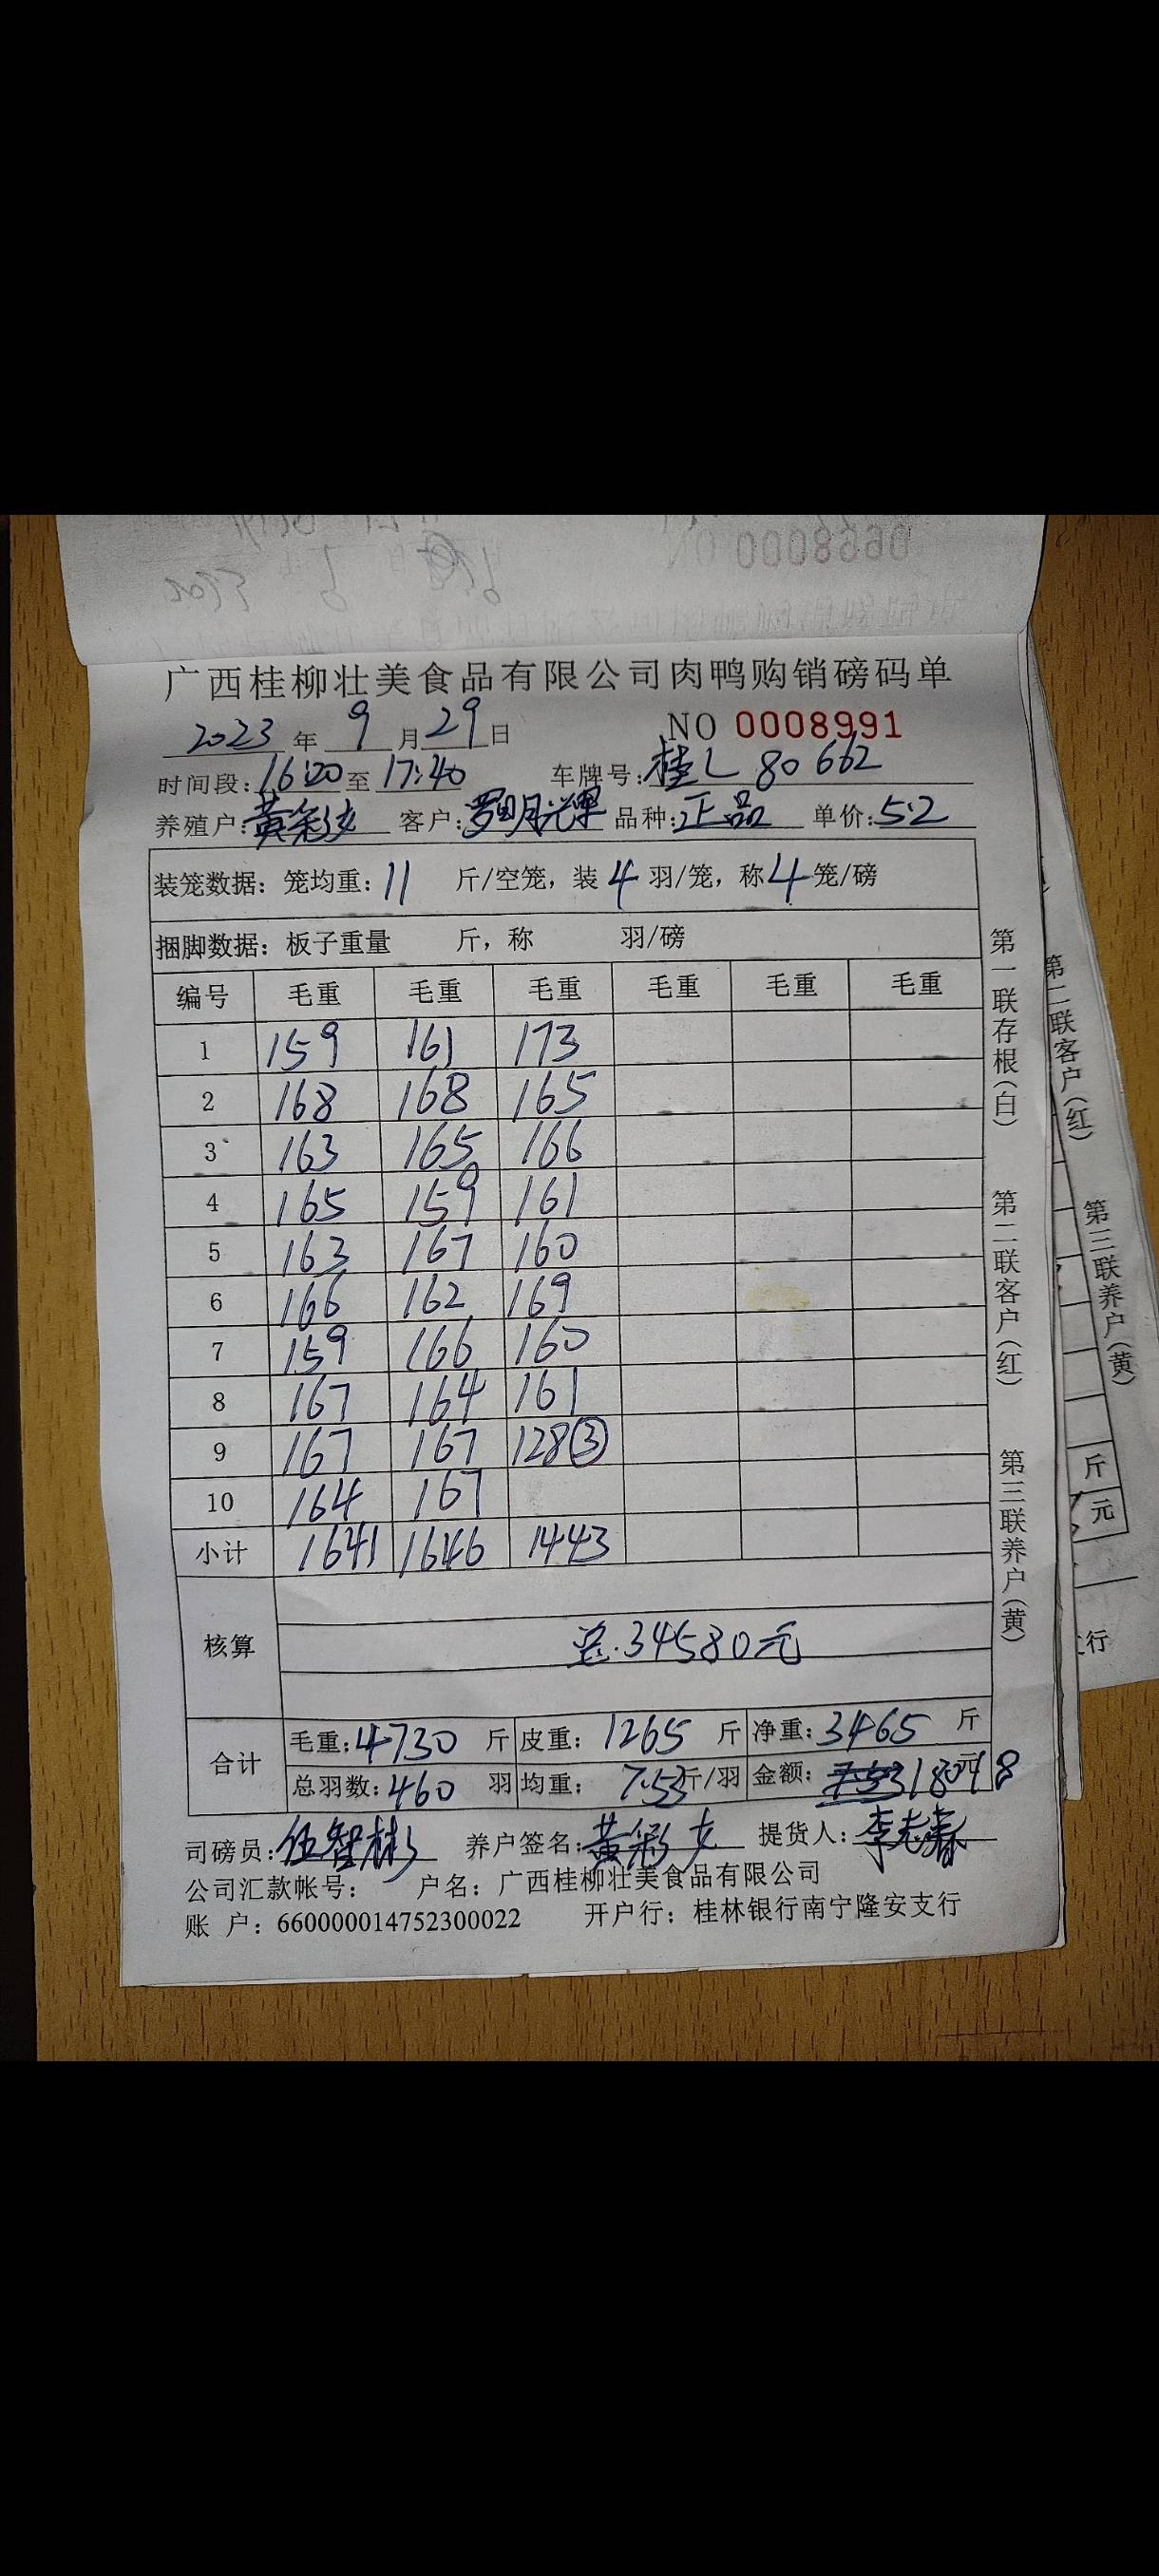 广西桂柳壮美食品有限公司肉鸭购销磅码单
2023年 9月29日 NO 0008991
时间段:16:20至17:40 车牌号:桂L 80662
养殖户:黄彩女 客户:罗明光 品种:正品 单价:5.2
装笼数据: 笼均重:11 斤/空笼, 装4羽/笼, 称4笼/磅
捆脚数据: 板子重量 斤, 称 羽/磅
编号 毛重 毛重 毛重 毛重 毛重 毛重
1 159 161 173
2 168 168 165
3 163 165 166
4 165 159 161
5 163 167 160
6 166 162 169
7 159 166 160
8 167 164 161
9 167 167 128③
10 164 167
小计 1641 1646 1443
核算 总.34580元
合计 毛重:4730 斤 皮重: 1265 斤 净重:3465 斤
总羽数:460 羽 均重: 7.53斤/羽 金额: 18018元
司磅员:伍智彬 养户签名:黄彩女 提货人:李志春
公司汇款帐号: 户名: 广西桂柳壮美食品有限公司
账 户: 660000014752300022 开户行: 桂林银行南宁隆安支行
第一联存根(白) 第二联客户(红) 第三联养户(黄)
第二联客户(红) 第三联养户(黄)
斤
元
行